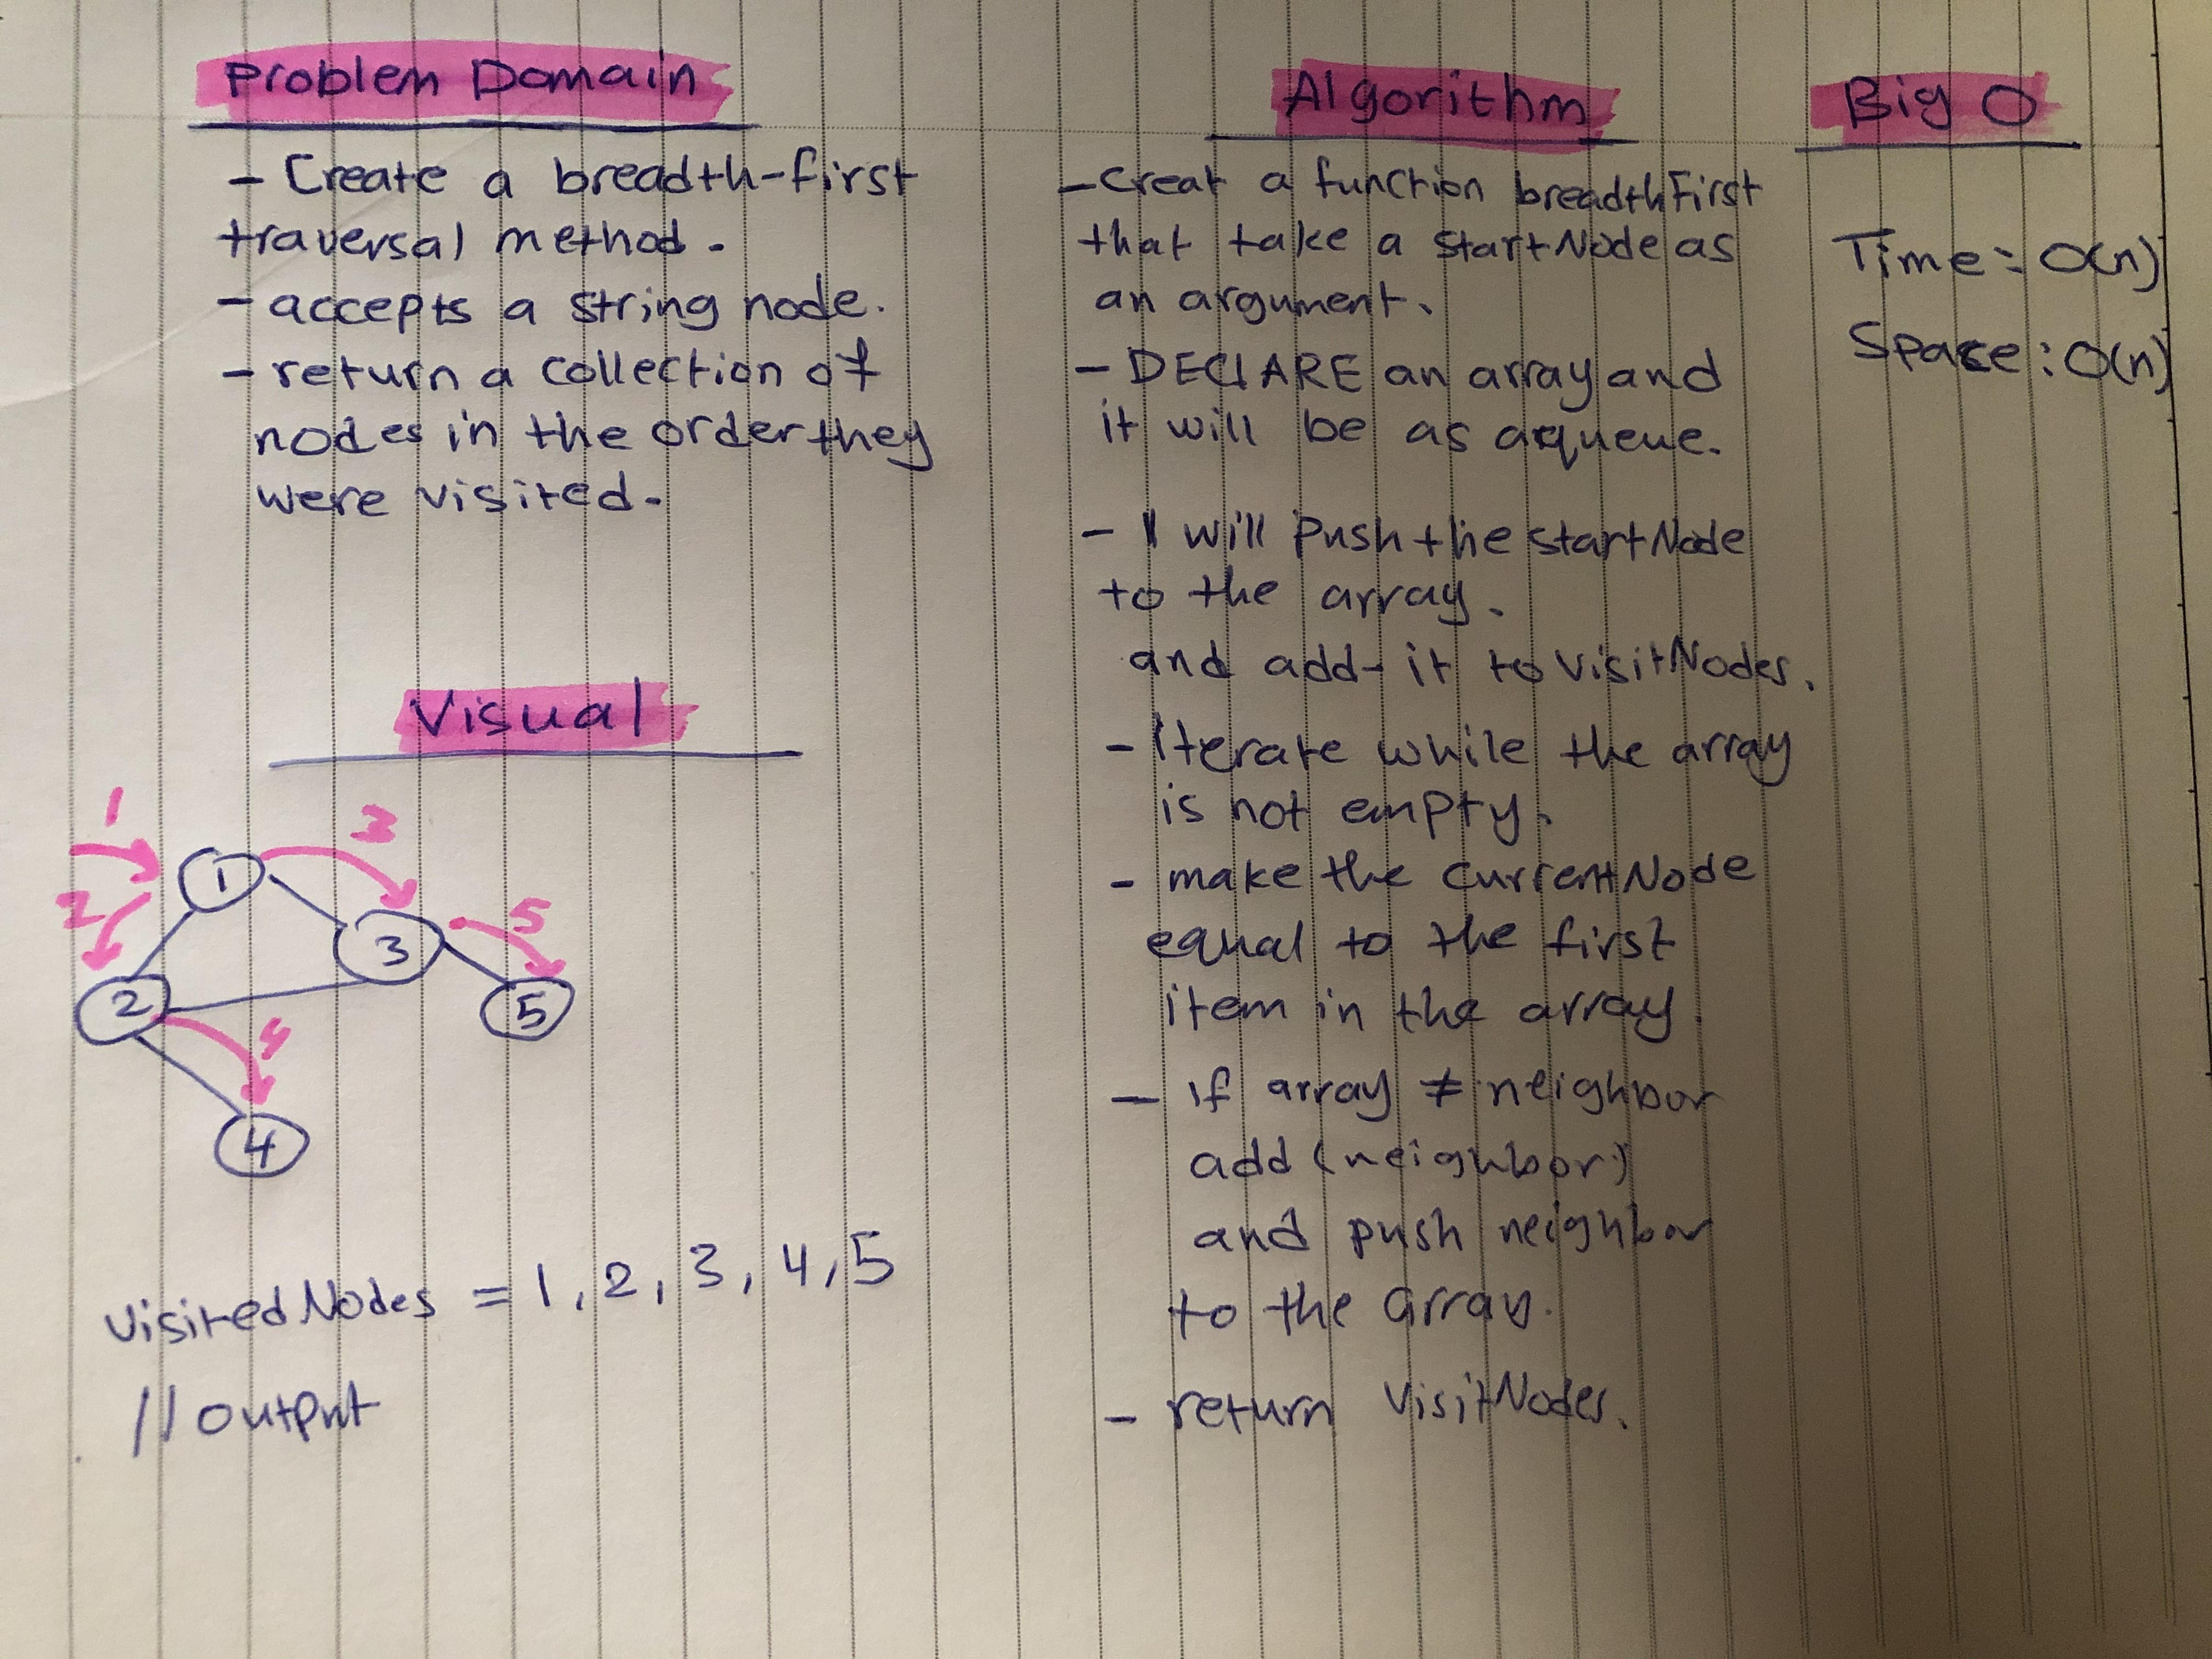 Problem Domain
- Create a breadth-first
traversal method.
- accepts a string node.
- return a collection of
nodes in the order they
were visited.
Visual
1
3
2
1
5
3
2
5
4
4
visitedNodes = 1, 2, 3, 4, 5
// output
Algorithm
- Creat a function breadthFirst
that take a startNode as
an argument.
- DECLARE an array and
it will be as a queue.
- I will push the startNode
to the array.
and add it to visitNodes.
- iterate while the array
is not empty.
- make the currentNode
equal to the first
item in the array.
- if array ≠ neighbor
add (neighbor)
and push neighbor
to the array.
- return visitNodes.
Big O
Time: O(n)
Space: O(n)